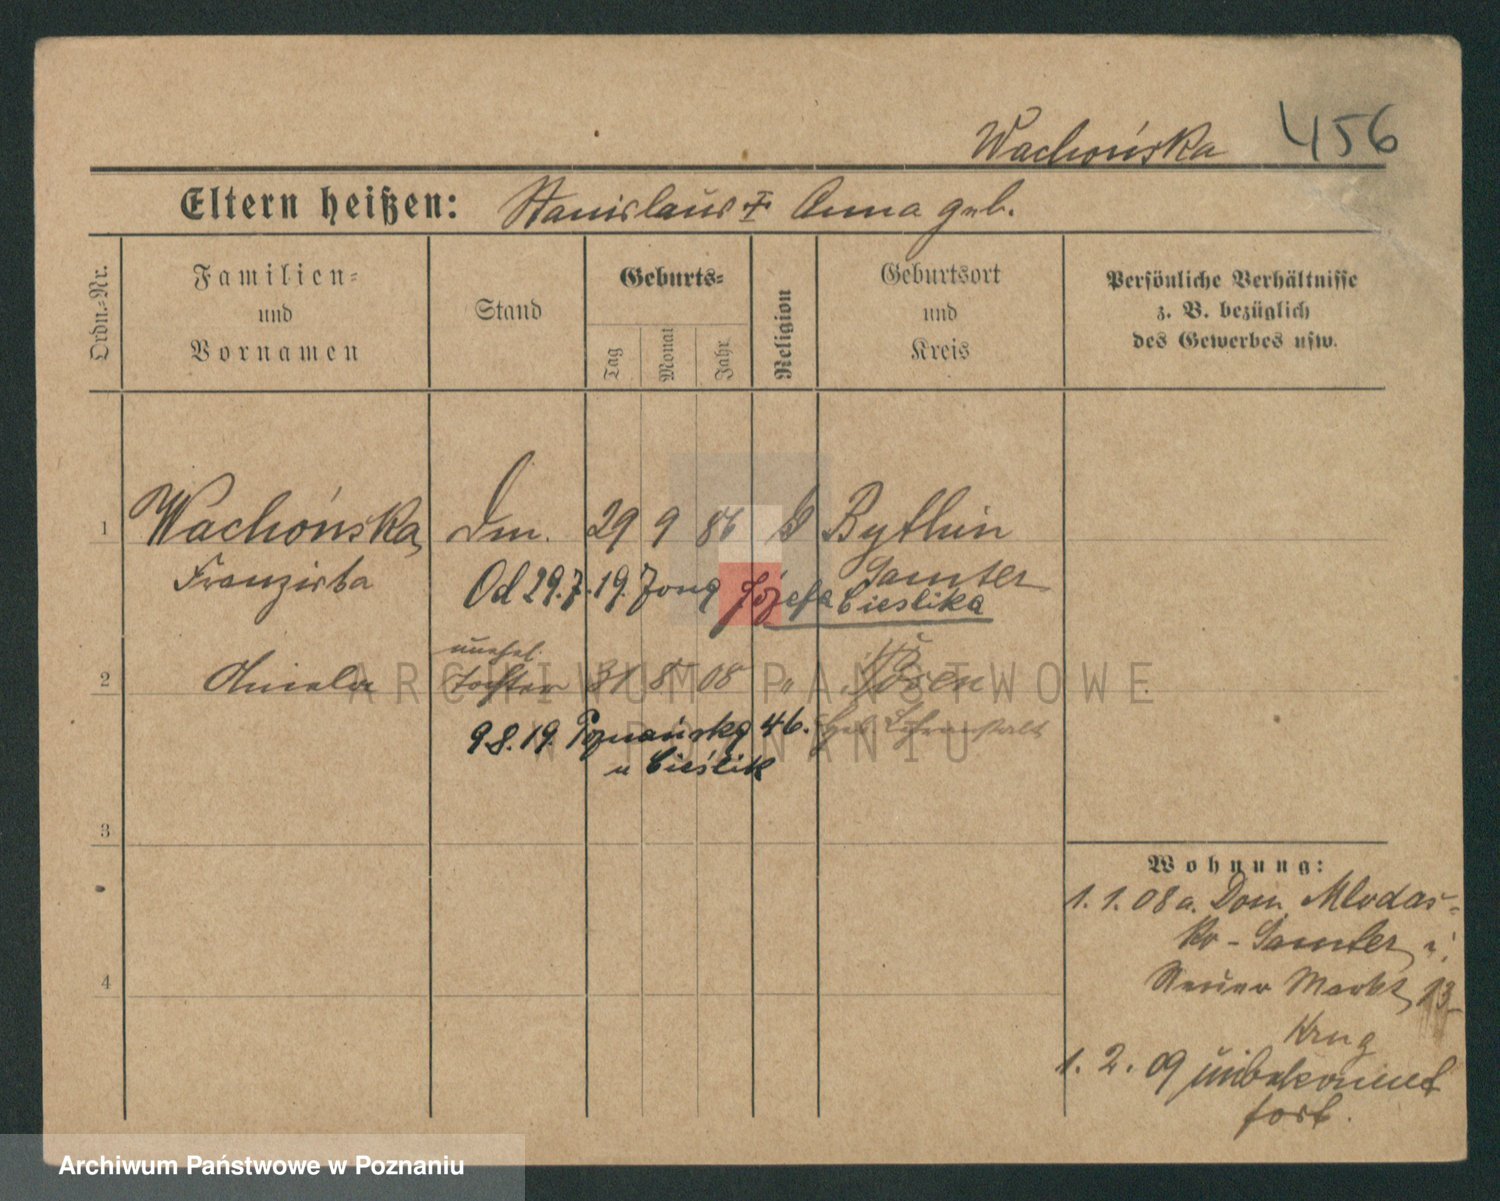 Wachońska 456
Eltern heißen: Stanislaus + Anna geb.
Ordn.=Nr.
Familien=
und
Vornamen
Stand
Geburts=
Tag
Monat
Jahr
Religion
Geburtsort
und
Kreis
Persönliche Verhältnisse
z. B. bezüglich
des Gewerbes usw.
1 Wachońska, Dm. 29 9 86 Bythin
Franziska Samter
Od 29.7.19. Żoną Józefa Cieslika
unehel.
2 Aniela Tochter 31 8 08 " Posen
9.8.19. Poznańska 46.
u Cieślik
3
4
Wohnung:
1.1.08 a. Dom. Mlodas-
ko - Samter n.
Neuer Markt 13
Krug
1.2.09 unbekannt
fort.
ARCHIWUM PAŃSTWOWE
W POZNANIU
Archiwum Państwowe w Poznaniu